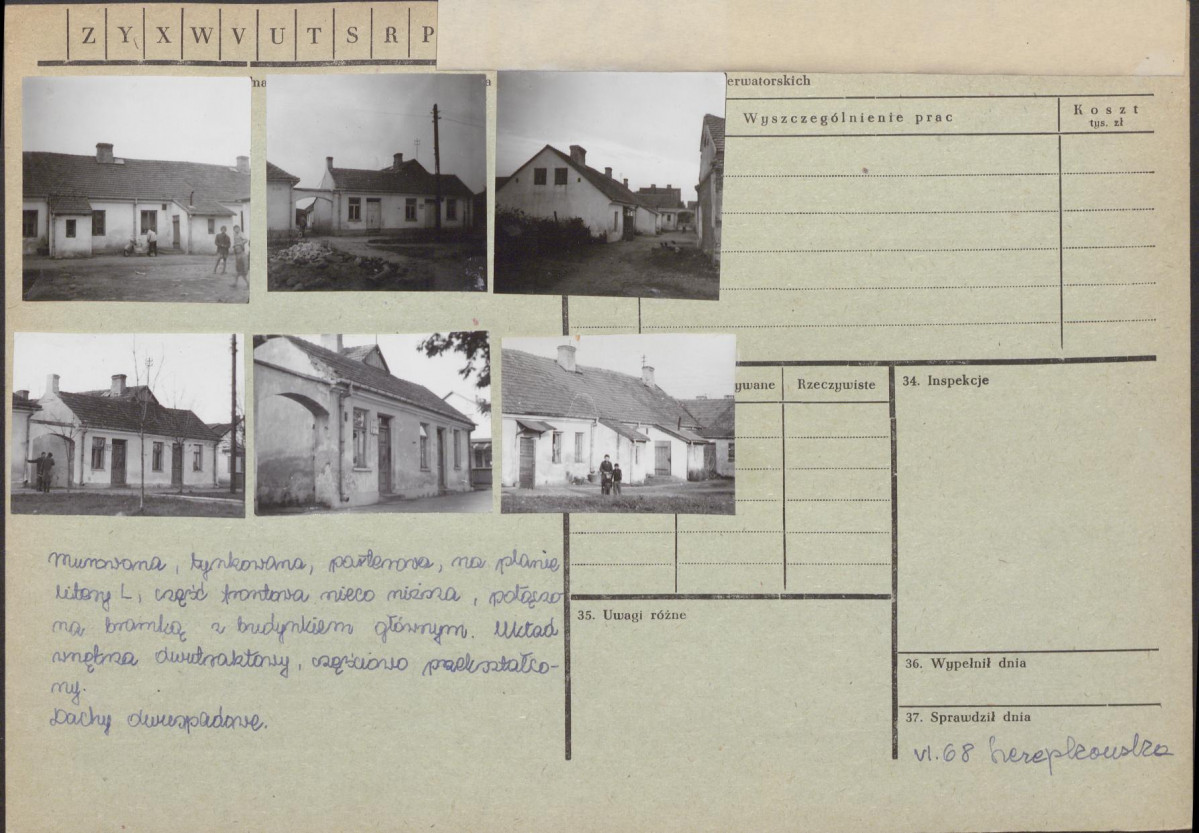 Z Y X W V U T S R P
na
a
erwatorskich
Wyszczególnienie prac
Koszt
tys. zł
ywane
Rzeczywiste
34. Inspekcje
Murowana, tynkowana, parterowa, na planie
litery L, część frontowa nieco niższa, połączo
na bramką z budynkiem głównym. Układ
wnętrza dwutraktowy, częściowo przekształco-
ny.
Dachy dwuspadowe.
35. Uwagi różne
36. Wypełnił dnia
37. Sprawdził dnia
VI.68